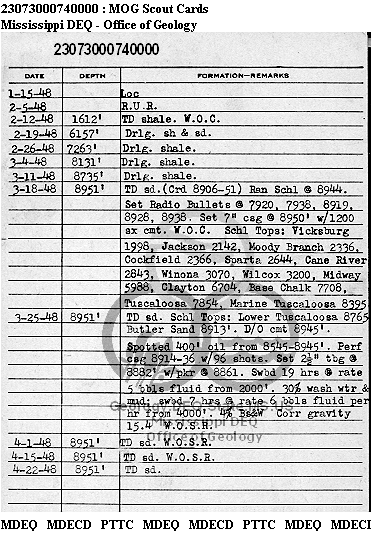 23073000740000 : MOG Scout Cards
Mississippi DEQ - Office of Geology
23073000740000
DATE DEPTH FORMATION—REMARKS
1-15-48 Loc
2-5-48 R.U.R.
2-12-48 1612' TD shale. W.O.C.
2-19-48 6157' Drlg. sh & sd.
2-26-48 7263' Drlg. shale.
3-4-48 8131' Drlg. shale.
3-11-48 8735' Drlg. shale.
3-18-48 8951' TD sd.(Crd 8906-51) Ran Schl @ 8944.
Set Radio Bullets @ 7920, 7938, 8919,
8928, 8938. Set 7" csg @ 8950' w/1200
sx cmt. W.O.C. Schl Tops: Vicksburg
1998, Jackson 2142, Moody Branch 2336,
Cockfield 2366, Sparta 2644, Cane River
2843, Winona 3070, Wilcox 3200, Midway
5988, Clayton 6704, Base Chalk 7708,
Tuscaloosa 7854, Marine Tuscaloosa 8395
3-25-48 8951' TD sd. Schl Tops: Lower Tuscaloosa 8765
Butler Sand 8913'. D/O cmt 8945'.
Spotted 400' oil from 8545-8945'. Perf
csg 8914-36 w/96 shots. Set 2½" tbg @
8882' w/pkr @ 8861. Swbd 19 hrs @ rate
5 bbls fluid from 2000'. 30% wash wtr &
mud; swbd 7 hrs @ rate 6 bbls fluid per
hr from 4000'. 4% Bs&W Corr gravity
15.4 W.O.S.R.
4-1-48 8951' TD sd. W.O.S.R.
4-15-48 8951' TD sd. W.O.S.R.
4-22-48 8951' TD sd.
Mississippi DEQ
Office of Geology
MDEQ MDECD PTTC MDEQ MDECD PTTC MDEQ MDECI